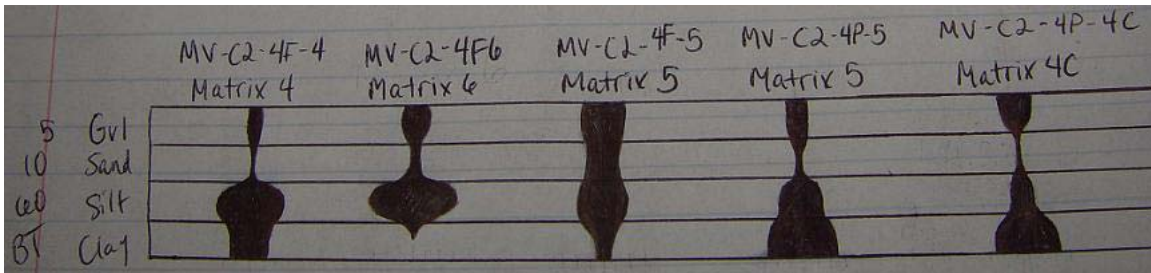 MV-C2-4F-4
Matrix 4
MV-C2-4F6
Matrix 6
MV-C2-4F-5
Matrix 5
MV-C2-4P-5
Matrix 5
MV-C2-4P-4C
Matrix 4C
5 Gvl
10 Sand
60 Silt
BT Clay